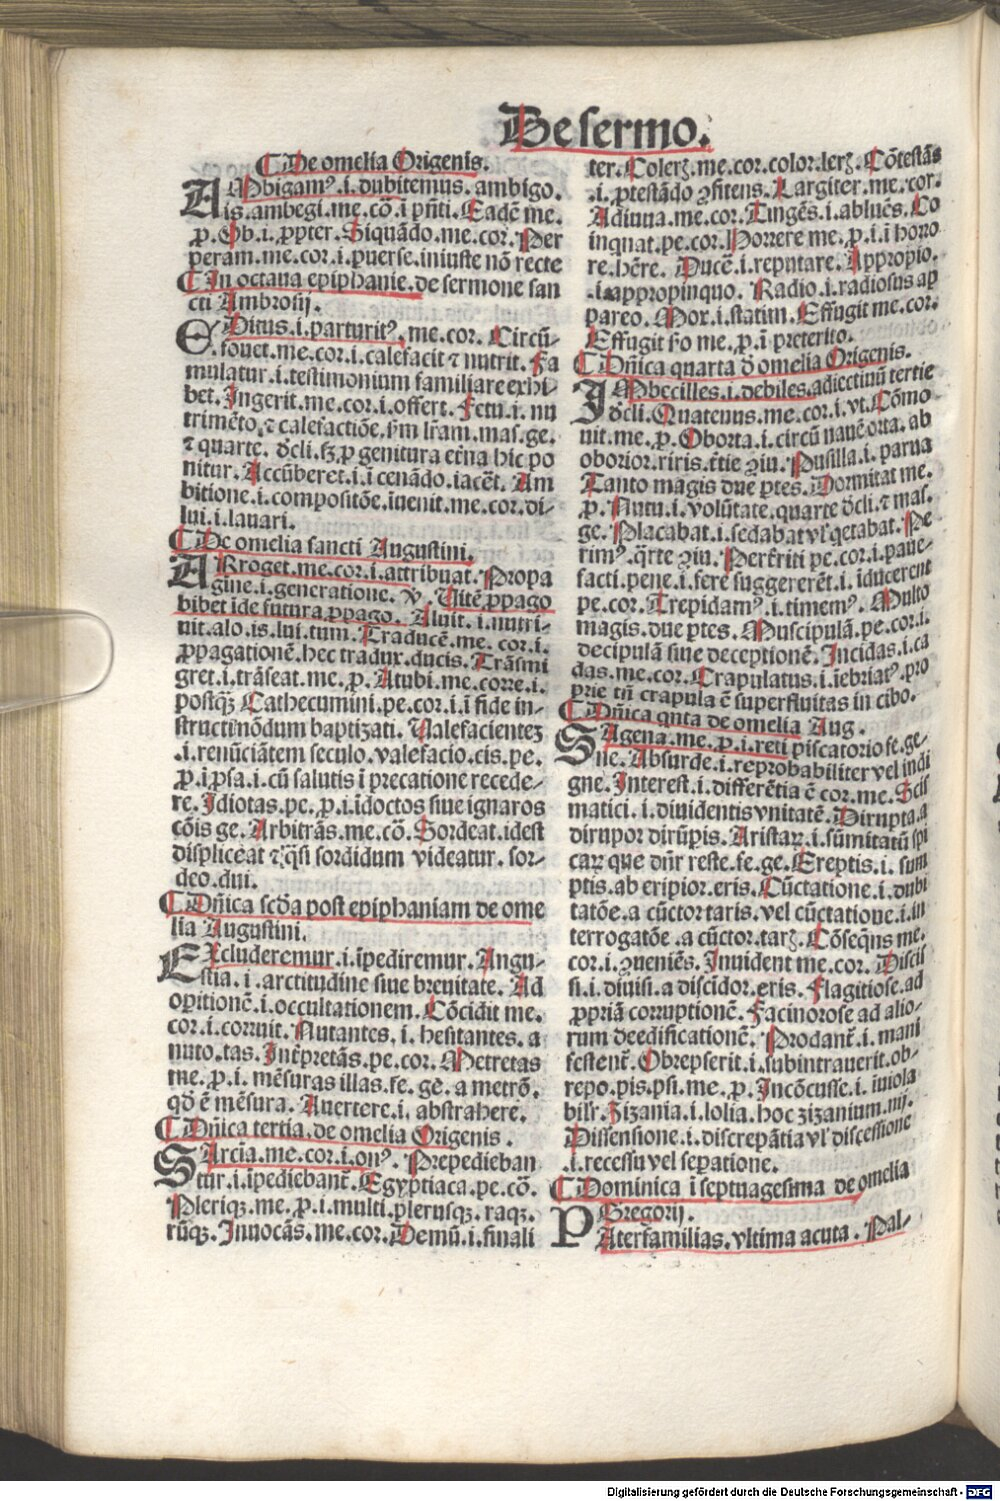 De sermo.
De omelia Origenis.
AMbigamꝰ.i.dubitemus. ambigo.
is.ambegi.me.cō.i pñti. Eadē me.
ꝓ.Ob.i.ꝓpter.Siquādo.me.cor.Per
peram.me.cor.i.puerse.iniuste nō recte
In octaua epiphanie.de sermone san
cti Ambrosij.
Ditus.i.parturitꝰ.me.cor. Circū-
fouet.me.cor.i.calefacit ⁊ nutrit. Fa
mulatur.i.testimonium familiare exhi-
bet.Ingerit.me.cor.i.offert.Fetu.i.nu
trimēto.⁊ calefactiōe.ẜm lr̄am.mas.ge.
⁊ quarte. dcli.sꝫ.ꝓ genitura eterna hic po
nitur.Accūberet.i.i cenādo.iacēt. Am
bitione.i.compositōe.iuenit.me.cor.di-
lui.i.lauari.
De omelia sancti Augustini.
ARroget.me.cor.i.attribuat.Propa
gine.i.generatione. Ꝟ. Usitē ꝓpago
bibet ide futura ꝓpago. Aluit.i.nutri-
uit.alo.is.lui.tum.Traducē.me. cor.i.
ꝓpagationē.hec tradux.ducis. Trāsmi
gret.i.trāseat.me.ꝓ. Atubi.me.corre.i.
postqꝫ Cathecumini.pe.cor.i.i fide in-
structi nōdum baptizati. Ualefacienteꝫ
.i.renūciātem seculo.valefacio.cis.pe.
ꝓ.i ꝓsa.i.cū salutis i precatione recede-
re.Idiotas.pe.ꝓ.i.idoctos siue ignaros
cōis ge.Arbitrās.me.cō.Sordeat.idest
displiceat ⁊ qsi sordidum videatur. sor-
deo.dui.
Dñica scda post epiphaniam de ome
lia Augustini.
EXcluderemur.i.īpediremur. Angu-
stia.i.arctitudine siue breuitate. Ad
opitionē.i.occultationem. Cōcidit me.
cor.i.corruit.Nutantes.i.hesitantes.a
nuto.tas.Intp̄retās.pe.cor. Metretas
me.ꝓ.i.mēsuras illas.fe.ge.a metrō.
qd ē mēsura. Auertere.i.abstrahere.
Dñica tertia.de omelia Origenis.
SArcia.me.cor.i.onꝰ. Prepedieban
tur.i.īpediebant̄.Egyptiaca.pe.cō.
Pleriqꝫ.me.ꝓ.i.multi.plerusqꝫ.raqꝫ.
rūqꝫ.Inuocās.me.cor.Demū.i.finali
ter.Colerꝫ.me.cor.color.lerꝫ. Cōtestās
.i.ꝓtestādo ꝯfitens.Largiter.me.cor.
Adiuua.me.cor.Tingēs.i.abluēs.Co
inquat.pe.cor.Horrere me.ꝓ.i.i horro
re.hēre. Ducē.i.reputare. Appropio.
.i.appropinquo. Radio.i.radiosus ap
pareo. Mox.i.statim.Effugit me.cor.
Effugit s̄o me.ꝓ.i preterito.
Dñica quarta d̄ omelia Origenis.
IMbecilles.i.debiles.adiectiuū tertie
dcli.Quatenus.me.cor.i.vt.Cōmo
uit.me.ꝓ.Oborta.i.circū nauē orta.ab
oborior.riris.t̄tie ꝯiu. Pusilla.i.parua
Tanto magis due ptes.Dormitat me.
ꝓ.Nutu.i.volūtate.quarte dcli.⁊ mas.
ge.Placabat.i.sedabat vl' qetabat. Pe
rimꝰ.qrte ꝯiu.Perterriti pe.cor.i.paue-
facti.pene.i.fere suggererēt.i.iducerent
pe.cor.Trepidamꝰ.i.timemꝰ. Multo
magis.due ptes.Muscipulā.pe.cor.i.
decipulā siue deceptionē.Incidas.i.ca
das.me.cor.Crapulatus.i.iebriatꝰ.pro
prie tn̄ crapula ē superfluitas in cibo.
Dñica qnta de omelia Aug.
SAgena.me.ꝓ.i.reti piscatorio fe.ge-
ne. Absurde.i.reprobabiliter vel indi
gne.Interest.i.differētia ē cor.me.Scis
matici.i.diuidentis vnitatē. Dirupta.a
dirupor dirūpis. Aristaꝝ.i.sūmitatū spi
caꝝ que dñr reste.fe.ge.Ereptis.i.sum
ptis.ab eripior.eris. Cūctatione.i.dubi
tatōe.a cūctor taris.vel cūctatione.i.in
terrogatōe.a cūctor.tarꝫ.Cōseqns me.
cor.i.ꝯueniēs.Inuident me.cor.Discis
si.i.diuisi.a discidor.eris.Flagitiose.ad
ꝓpriā corruptionē.Facinorose ad alio-
rum deedificationē. Prodant̄.i.mani
festent̄.Obrepserit.i.subintrauerit.ob-
repo.pis.psi.me.ꝓ.Incōcusse.i.iuiola
bilr̄.Zizania.i.lolia.hoc zizanium.nij.
Dissensione.i.discrepātia vl' discessione
.i.recessu vel sepatione.
Dominica i septuagesima de omelia
Gregorij.
PAterfamilias.vltima acuta. Pal-
Digitalisierung gefördert durch die Deutsche Forschungsgemeinschaft - DFG